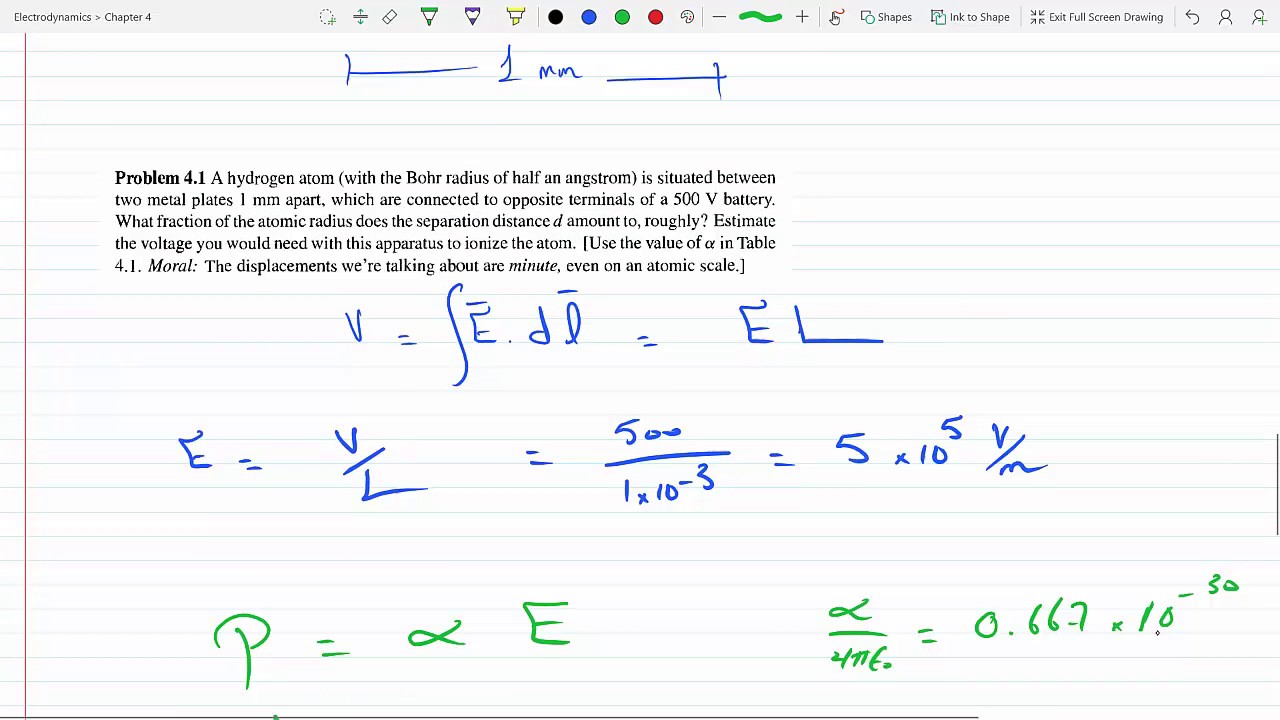 Electrodynamics > Chapter 4
Shapes
Ink to Shape
Exit Full Screen Drawing
1 mm
Problem 4.1 A hydrogen atom (with the Bohr radius of half an angstrom) is situated between
two metal plates 1 mm apart, which are connected to opposite terminals of a 500 V battery.
What fraction of the atomic radius does the separation distance d amount to, roughly? Estimate
the voltage you would need with this apparatus to ionize the atom. [Use the value of α in Table
4.1. Moral: The displacements we're talking about are minute, even on an atomic scale.]
V = ∫ E̅ . d l̅ = E L
E = V/L = 500/1×10⁻³ = 5 ×10⁵ V/m
P = α E
α/4πε₀ = 0.667 × 10⁻³⁰